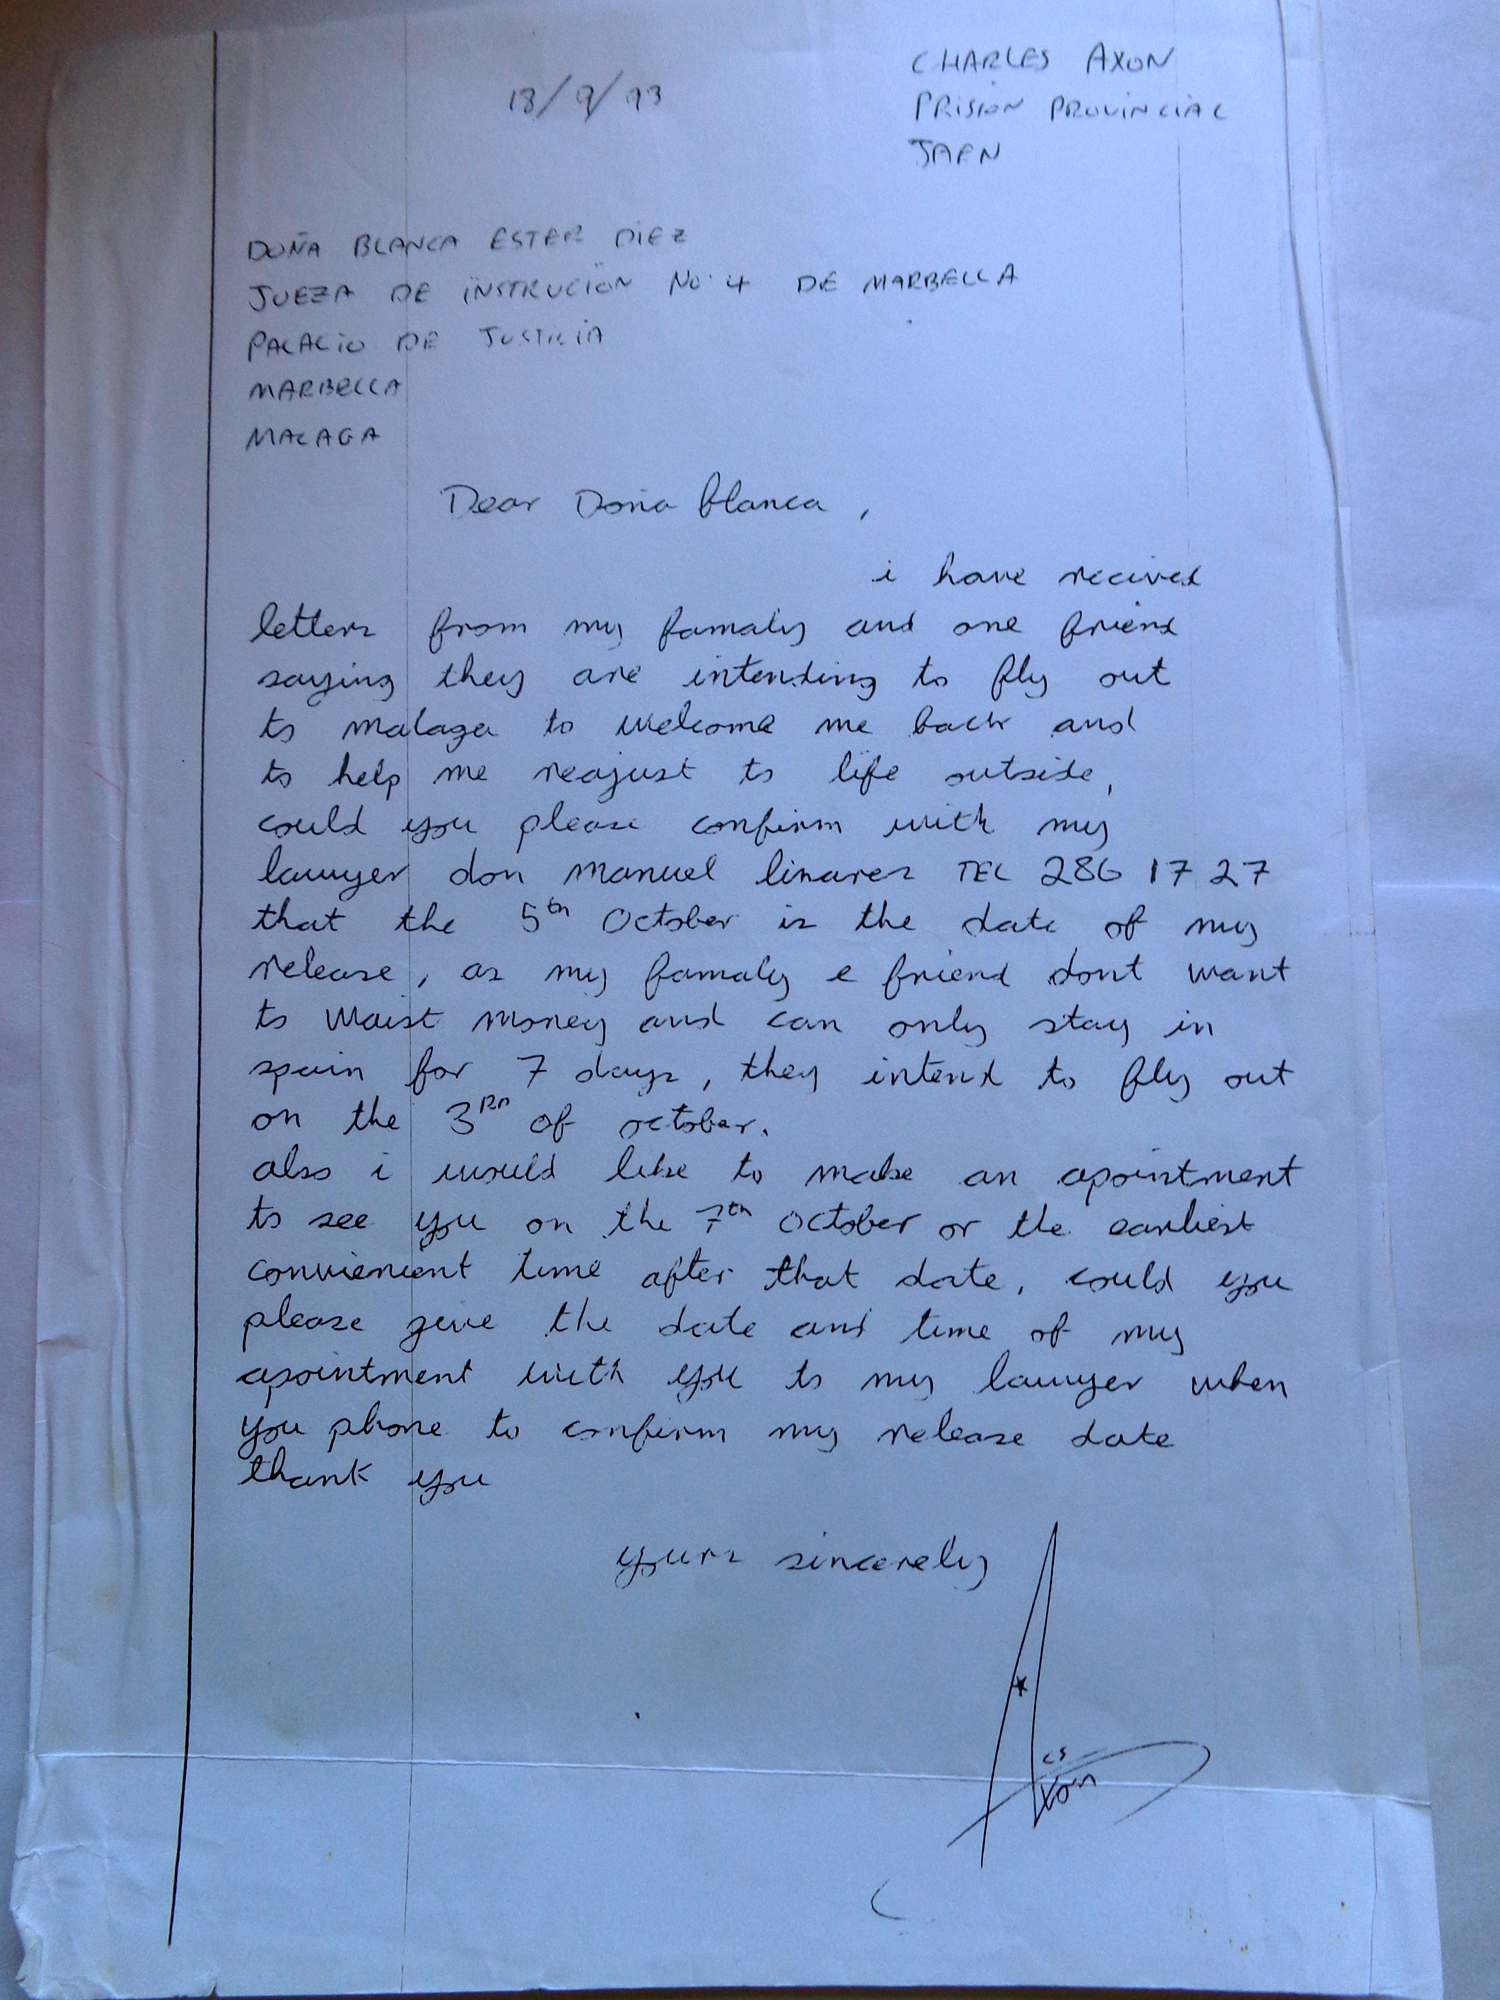 18/9/93
CHARLES AXON
PRISION PROVINCIAL
JAEN
DOÑA BLANCA ESTER DIEZ
JUEZA DE INSTRUCIÓN No. 4 DE MARBELLA
PALACIO DE JUSTICIA
MARBELLA
MALAGA
Dear Doña Blanca,
i have recived
letters from my famaly and one friend
saying they are intending to fly out
to malaga to welcome me back and
to help me reajust to life outside,
could you please confirm with my
lawyer don manuel linares TEL 286 17 27
that the 5th October is the date of my
release, as my famaly e friend dont want
to waist money and can only stay in
spain for 7 days, they intend to fly out
on the 3RD of october.
also i would like to make an apointment
to see you on the 7th October or the earliest
convienient time after that date, could you
please give the date and time of my
apointment with you to my lawyer when
you phone to confirm my release date
thank you
yours sincerely
CS
Axon